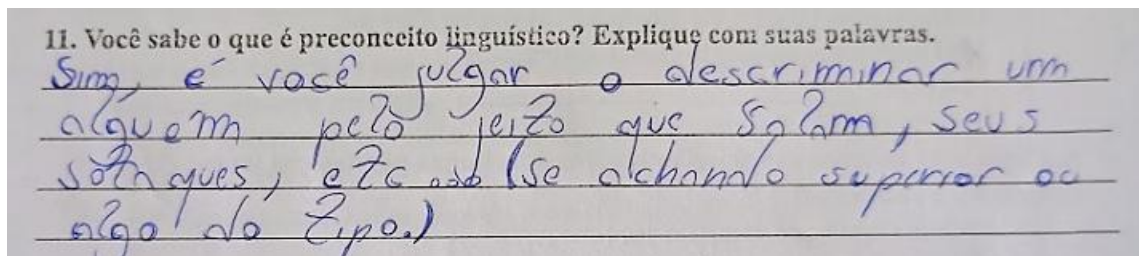 11. Você sabe o que é preconceito linguístico? Explique com suas palavras.
Sim, é você julgar o descriminar um
alguem pelo jeito que falam, seus
sotaques, etc... (se achando superior ou
algo do tipo.)